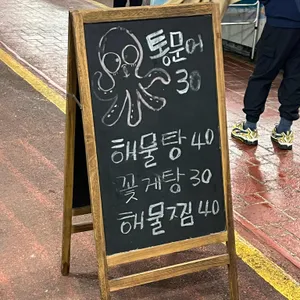 통문어
30
해물탕 40
꽃게탕 30
해물찜 40